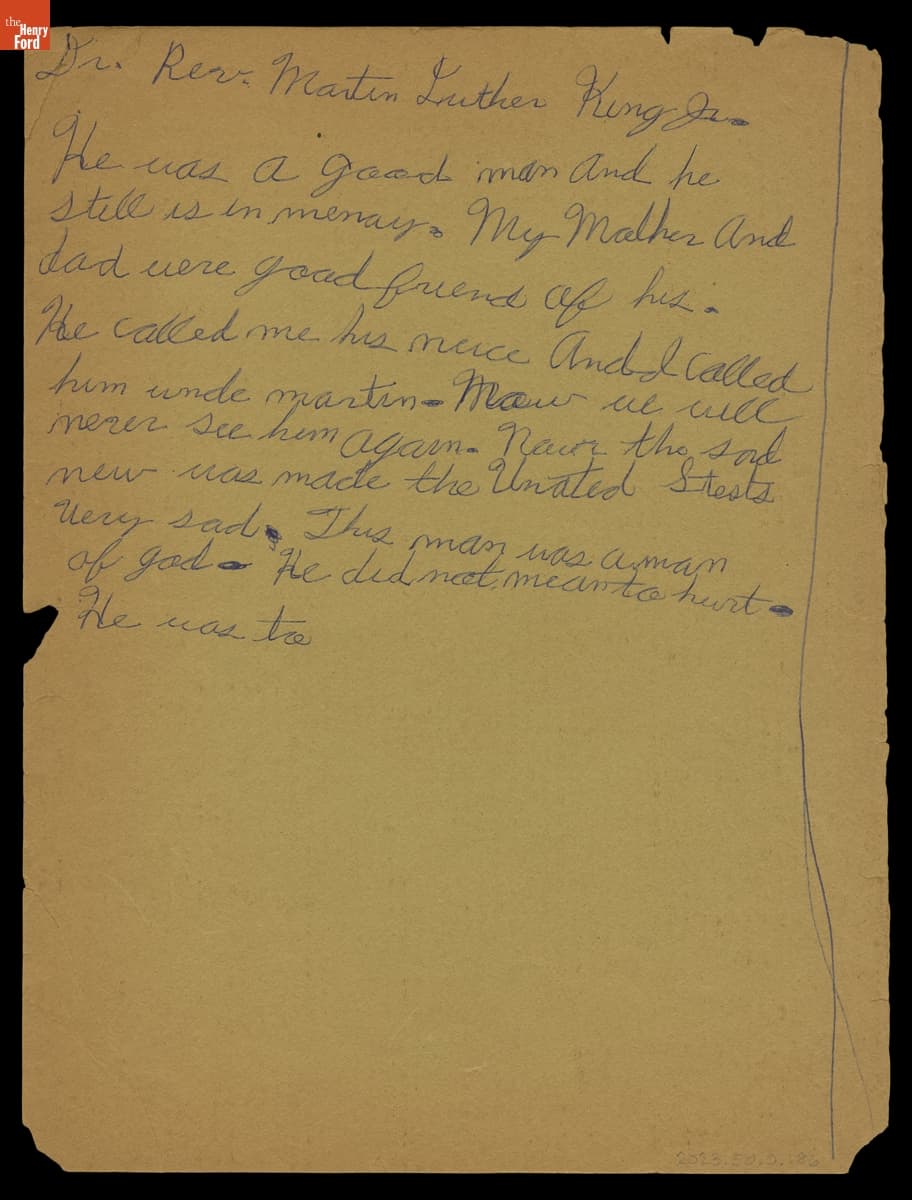 the
Henry
Ford
Dr. Rev. Martin Luther King Jr.
He was a good man and he
still is in menay. My Mother And
dad were good friend of his.
He called me his neice And I called
him uncle martin. Now we will
never see him again. the sad
new was made the Unated Stests
Very sad. This man was a man
of god. He did not mean to hurt.
He was to